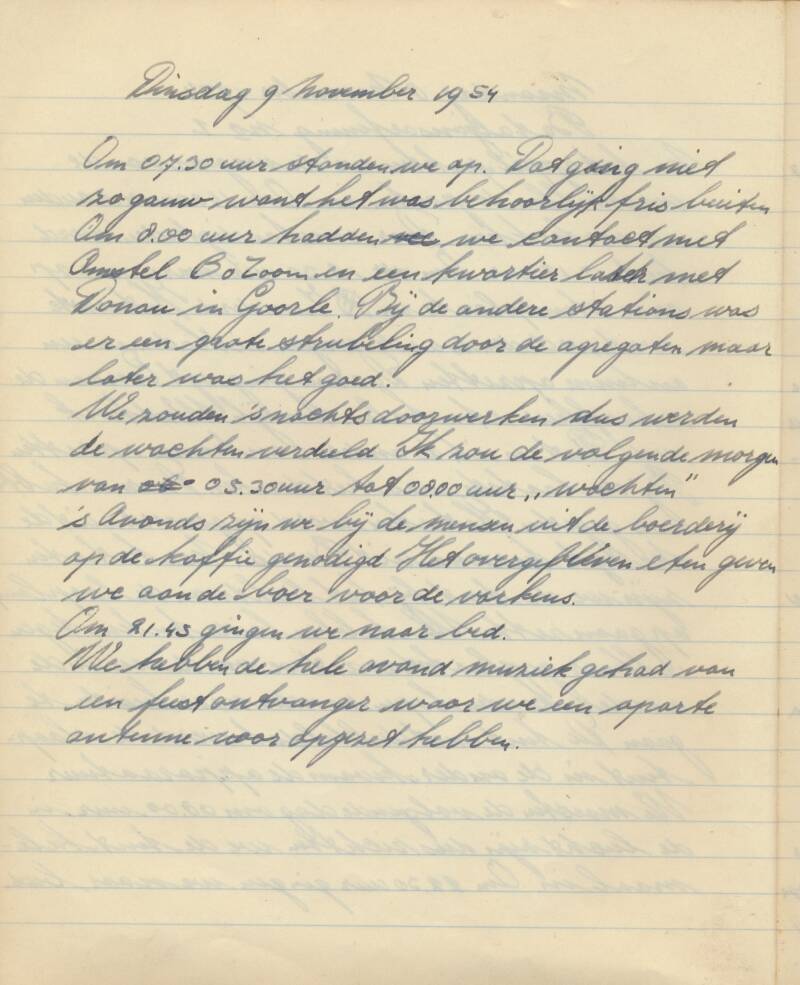 Dinsdag 9 November 1954
Om 07.30 uur stonden we op. Dat ging niet
zo gauw want het was behoorlijk fris buiten
Om 8.00 uur hadden we contact met
Amstel B o Zoom en een kwartier later met
Donau in Goorle. Bij de andere stations was
er een grote strubeling door de agregaten maar
later was het goed.
We zouden 's nachts doorwerken dus werden
de wachten verdeeld Ik zou de volgende morgen
van 05.30 uur tot 08.00 uur „wachten”
's Avonds zijn we bij de mensen uit de boerderij
op de koffie genodigd Het overgebleven eten geven
we aan de boer voor de varkens.
Om 21.45 gingen we naar bed.
We hebben de hele avond muziek gehad van
een feestontvanger waar we een aparte
antenne voor opgezet hebben.